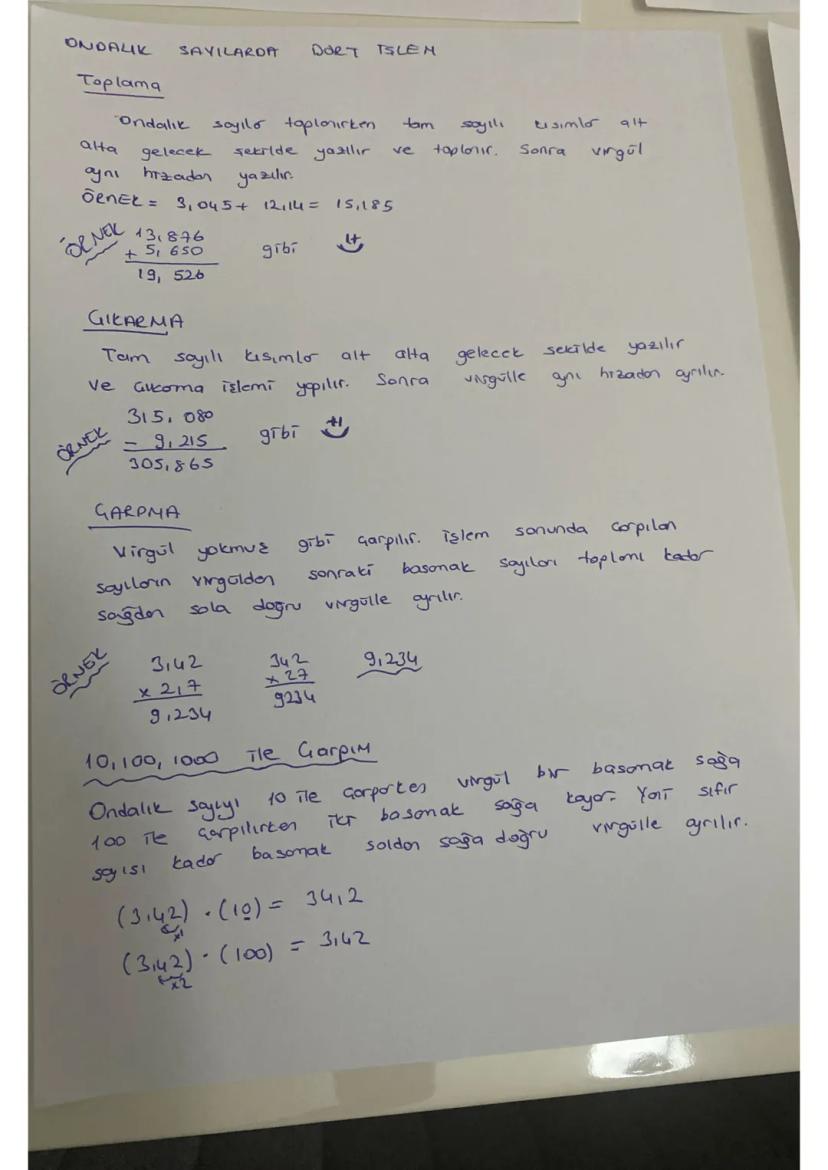 ONDALIK SAYILARDA DÖRT İŞLEM
Toplama
Ondalık sayılar toplanırken tam sayılı kısımlar alt
alta gelecek şekilde yazılır ve toplanır. Sonra virgül
aynı hizadan yazılır.
ÖRNEK = 3,045 + 12,14 = 15,185
ÖRNEK 13,876
+ 5,650 gibi
19,526
ÇIKARMA
Tam sayılı kısımlar alt alta gelecek şekilde yazılır
ve çıkarma işlemi yapılır. Sonra virgülle aynı hizadan ayrılır.
315,080
ÖRNEK - 9,215 gibi
305,865
ÇARPMA
Virgül yokmuş gibi çarpılır. İşlem sonunda çarpılan
sayıların virgülden sonraki basamak sayıları toplamı kadar
sağdan sola doğru virgülle ayrılır.
ÖRNEK 3,42 342 9,234
x 2,7 x 27
9,234 9234
10, 100, 1000 ile Çarpım
Ondalık sayıyı 10 ile çarparken virgül bir basamak sağa
100 ile çarpılırken iki basamak sağa kayar. Yani sıfır
sayısı kadar basamak soldan sağa doğru virgülle ayrılır.
(3,42) · (10) = 34,2
x1
(3,42) · (100) = 3,42
x2